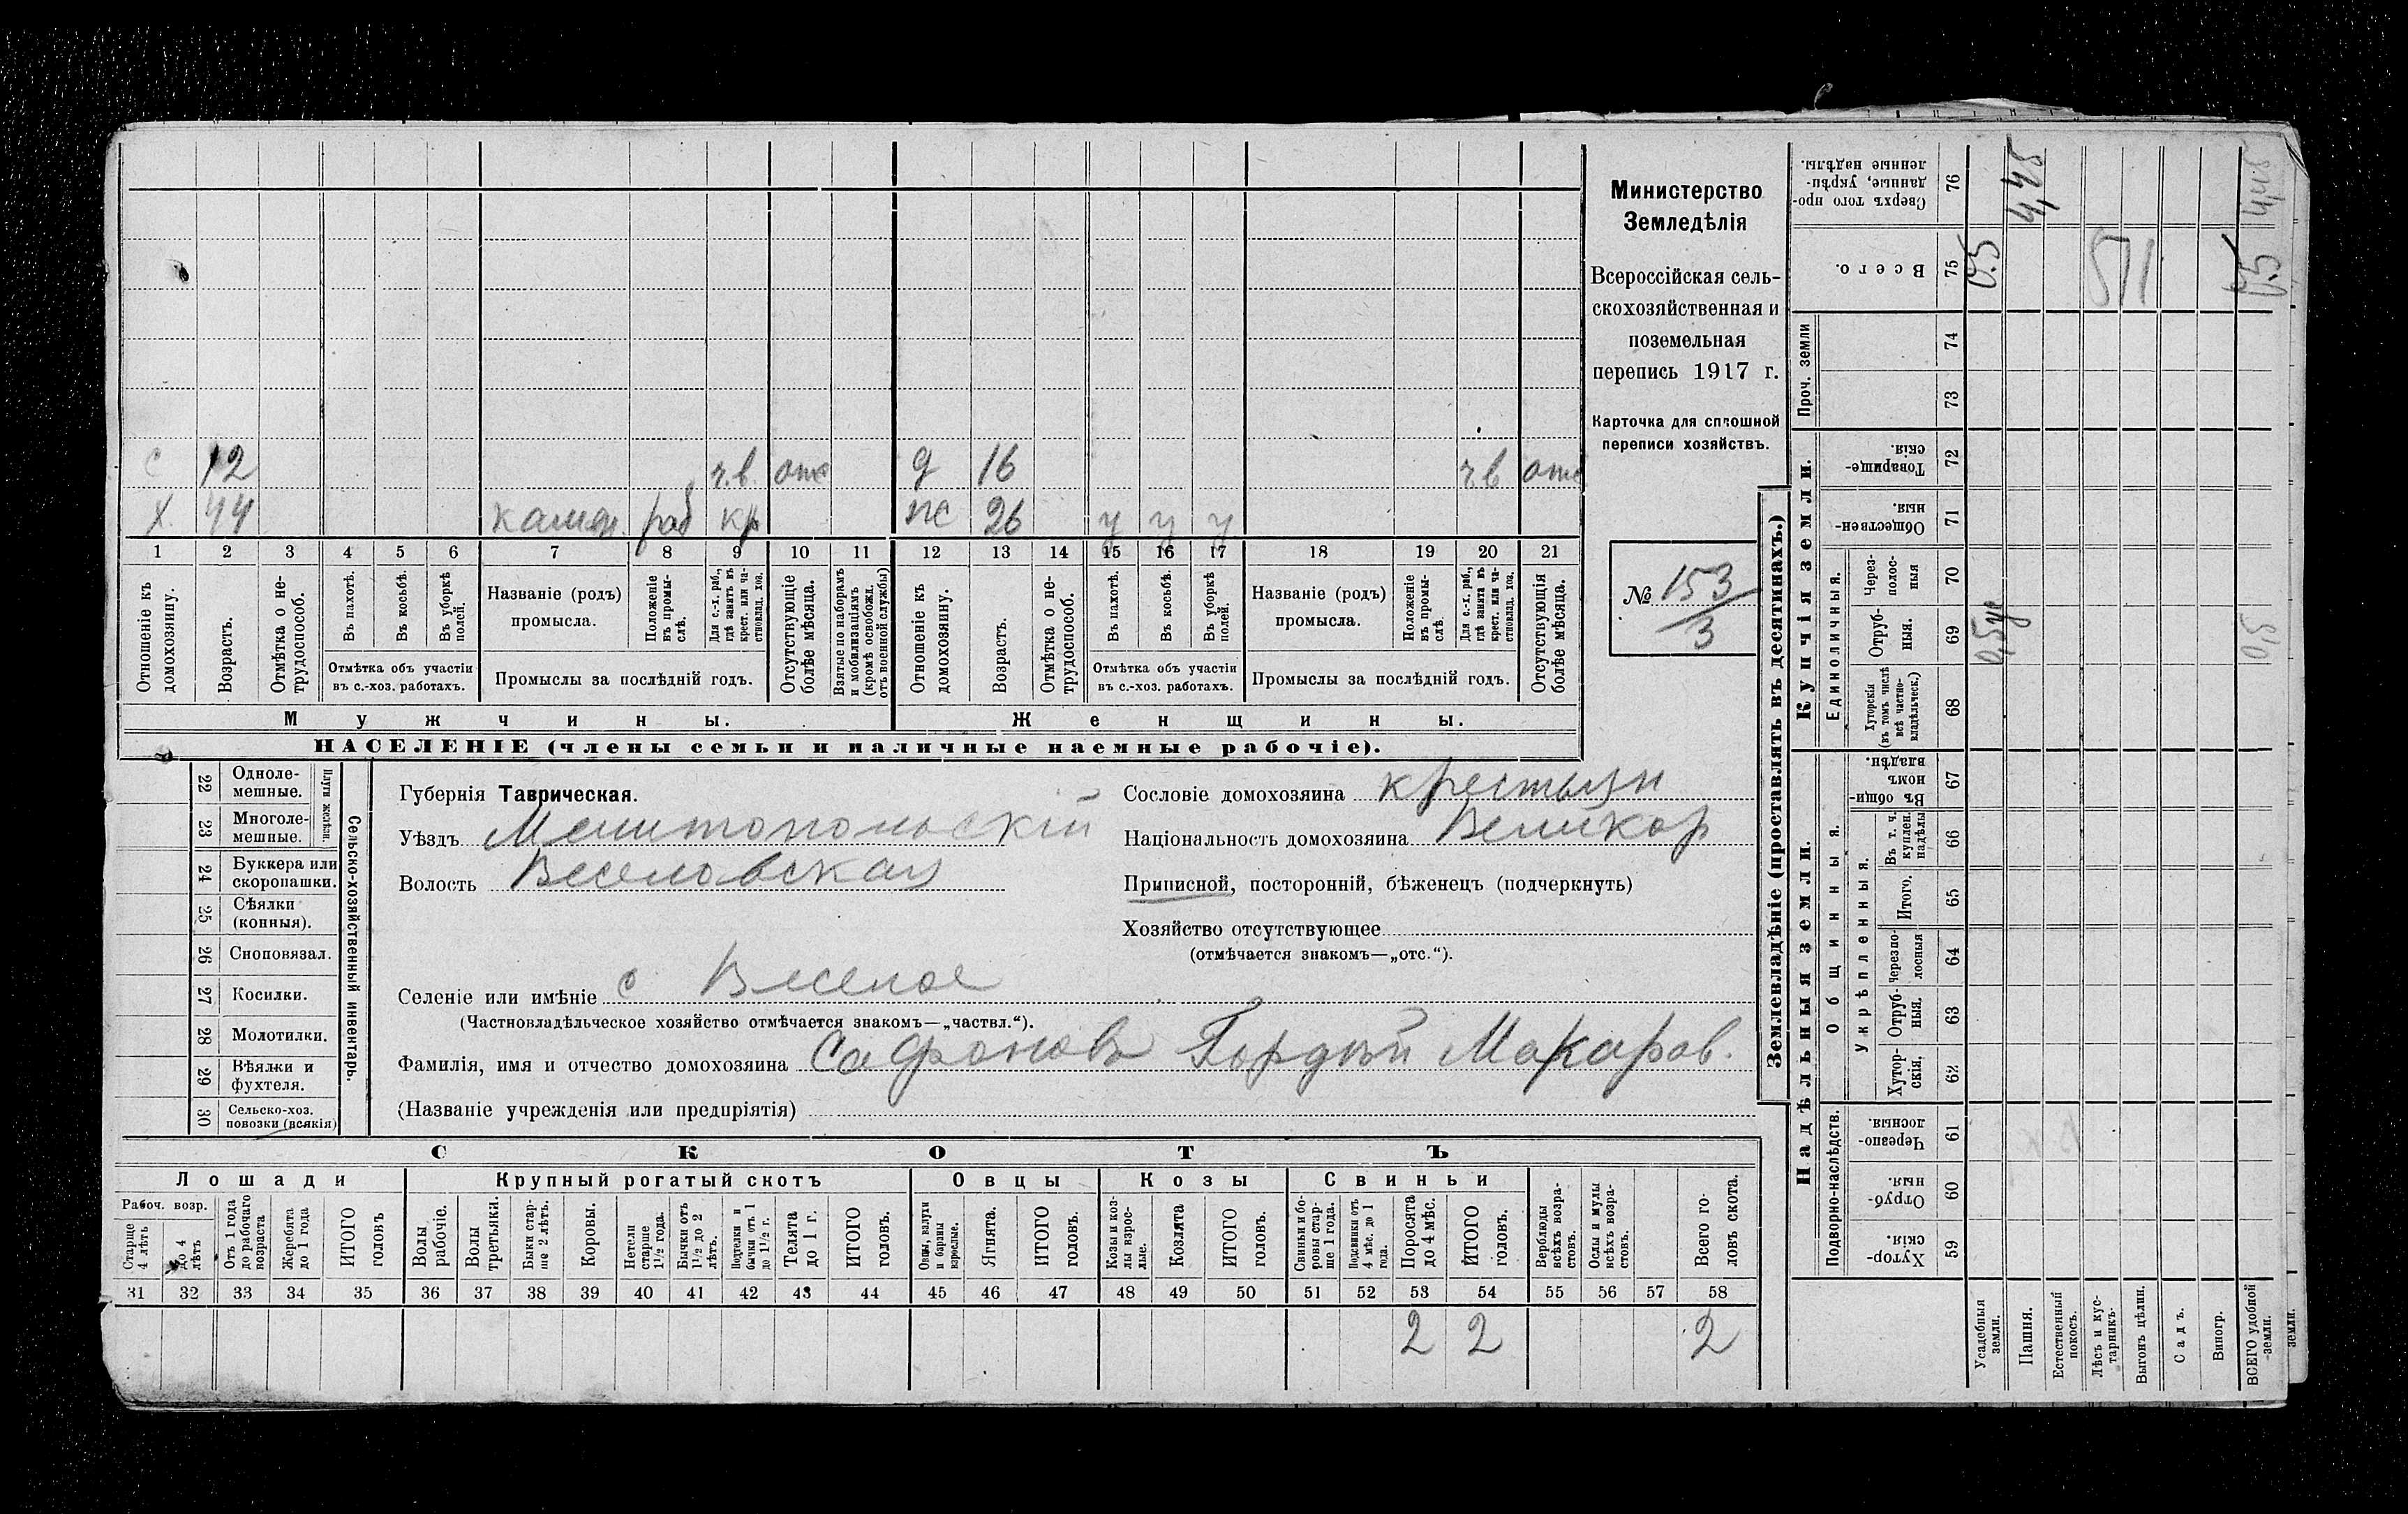 Министерство
Земледѣлія
Всероссійская сель-
скохозяйственная и
поземельная
перепись 1917 г.
Карточка для сплошной
переписи хозяйствъ.
№ 153
3
с 12 ч.в. отс д 16 ч.в отс
х 44 раб кр 26 у у у
1 2 3 4 5 6 7 8 9 10 11 12 13 14 15 16 17 18 19 20 21
Отношеніе къ домохозяину.
Возрастъ.
Отмѣтка о не-трудоспособ.
Въ пахотѣ.
Въ косьбѣ.
Въ уборкѣ полей.
Отмѣтка объ участіи
въ с.-хоз. работахъ.
Названіе (родъ)
промысла.
Положеніе въ промы-слѣ.
Для с.-х. раб., гдѣ занятъ въ крест. или ча-стновлад. хоз.
Промыслы за послѣдній годъ.
Отсутствующіе болѣе мѣсяца.
Взятые по наборамъ и мобилизаціямъ (кромѣ освобожд. отъ военной службы)
Отношеніе къ домохозяину.
Возрастъ.
Отмѣтка о не-трудоспособ.
Въ пахотѣ.
Въ косьбѣ.
Въ уборкѣ полей.
Отмѣтка объ участіи
въ с.-хоз. работахъ.
Названіе (родъ)
промысла.
Положеніе въ промы-слѣ.
Для с.-х. раб., гдѣ занята въ крест. или ча-стновлад. хоз.
Промыслы за послѣдній годъ.
Отсутствующія болѣе мѣсяца.
Мужчины.
Женщины.
НАСЕЛЕНІЕ (члены семьи и наличные наемные рабочіе).
Сельско-хозяйственный инвентарь.
Плуги желѣзн.
22 Одноле-мешные.
23 Многоле-мешные.
24 Буккера или скоропашки.
25 Сѣялки (конныя).
26 Сноповязал.
27 Косилки.
28 Молотилки.
29 Вѣялки и фухтеля.
30 Сельско-хоз. повозки (всякія)
Губернія Таврическая.
Уѣздъ Мелитопольскій
Волость Веселовская
Селеніе или имѣніе с Веселое
(Частновладѣльческое хозяйство отмѣчается знакомъ—„частвл.“).
Сословіе домохозяина крестьян
Національность домохозяина Великор
Приписной, посторонній, бѣженецъ (подчеркнуть)
Хозяйство отсутствующее
(отмѣчается знакомъ—„отс.“).
Фамилія, имя и отчество домохозяина Сафоновъ Гордѣй Макаров.
(Названіе учрежденія или предпріятія)
СКОТЪ
Лошади
Рабоч. возр.
Старше 4 лѣтъ
до 4 лѣтъ
Отъ 1 года до рабочаго возраста
Жеребята до 1 года
ИТОГО головъ
Крупный рогатый скотъ
Волы рабочіе.
Волы третьяки.
Быки стар-ше 2 лѣтъ.
Коровы.
Нетели старше 1½ года.
Бычки отъ 1½ до 2 лѣтъ.
Подтелки и бычки отъ 1 до 1½ г.
Телята до 1 г.
ИТОГО головъ.
Овцы
Овцы, валухи и бараны взрослые.
Ягнята.
ИТОГО головъ.
Козы
Козы и коз-лы взрос-лые.
Козлята
ИТОГО головъ.
Свиньи
Свиньи и бо-ровы стар-ше 1 года.
Подсвинки отъ 4 мѣс. до 1 года.
Поросята до 4 мѣс.
ИТОГО головъ.
Верблюды всѣхъ возра-стовъ.
Ослы и мулы всѣхъ возра-стовъ.
Всего го-ловъ скота.
31 32 33 34 35 36 37 38 39 40 41 42 43 44 45 46 47 48 49 50 51 52 53 54 55 56 57 58
2 2 2
Землевладѣніе (проставлять въ десятинахъ.)
Надѣльныя земли.
Подворно-наслѣдств.
Хутор-скія. 59
Отруб-ныя. 60
Черезпо-лосныя. 61
Общинныя.
Укрѣпленныя.
Хутор-скія. 62
Отруб-ныя. 63
Черезпо-лосныя 64
Итого. 65
Въ т. ч. куплен. надѣлы 66
Въ общи-номъ владѣн. 67
Купчія земли.
Единоличныя.
Хуторскія (въ томъ числѣ всѣ частно-владѣльческ.) 68
Отруб-ныя. 69
Через-полос-ныя 70
Обществен-ныя. 71
Товарище-скія. 72
Проч. земли
73
74
Всего. 75
Сверхъ того про-данные, укрѣп-ленные надѣлы. 76
Усадебныя земли. 0,5 0.5
Пашня. 4,45
Естественный покосъ.
Лѣсъ и кус-тарникъ.
Выгонъ цѣлин.
Садъ.
Виногр.
ВСЕГО удобной земли. 0,5 0.5
земли.
511